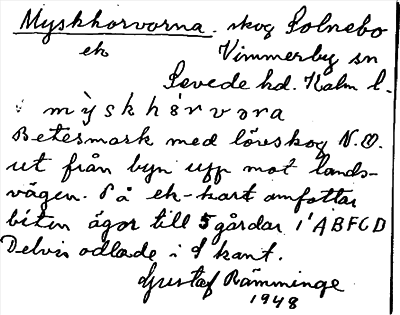 Myskhorvorna. skog Solnebo
ek Vimmerby sn
Sevede hd. Kalm l.
mỳskhèrvora
Betesmark med lövskog N.O.
ut från byn upp mot lands-
vägen. På ek-kart omfattar
biten ägor till 5 gårdar 1'ABFCD
Delvis odlade i S kant.
Gustaf Rämminge
1948